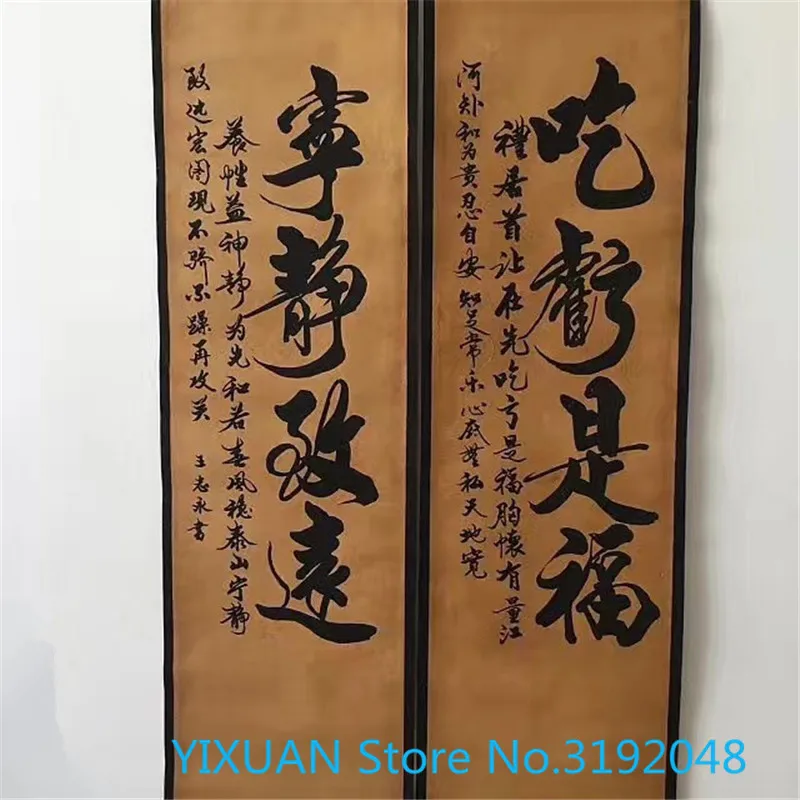 吃虧是福
禮居首让在先吃亏是福胸懷有量江
河卦和为贵忍自安知足常乐心底無私天地宽
寧靜致遠
养性益神静为先和若春风稳泰山宁静
致远宏图现不骄不躁再攻关
王志永書
YIXUAN Store No.3192048